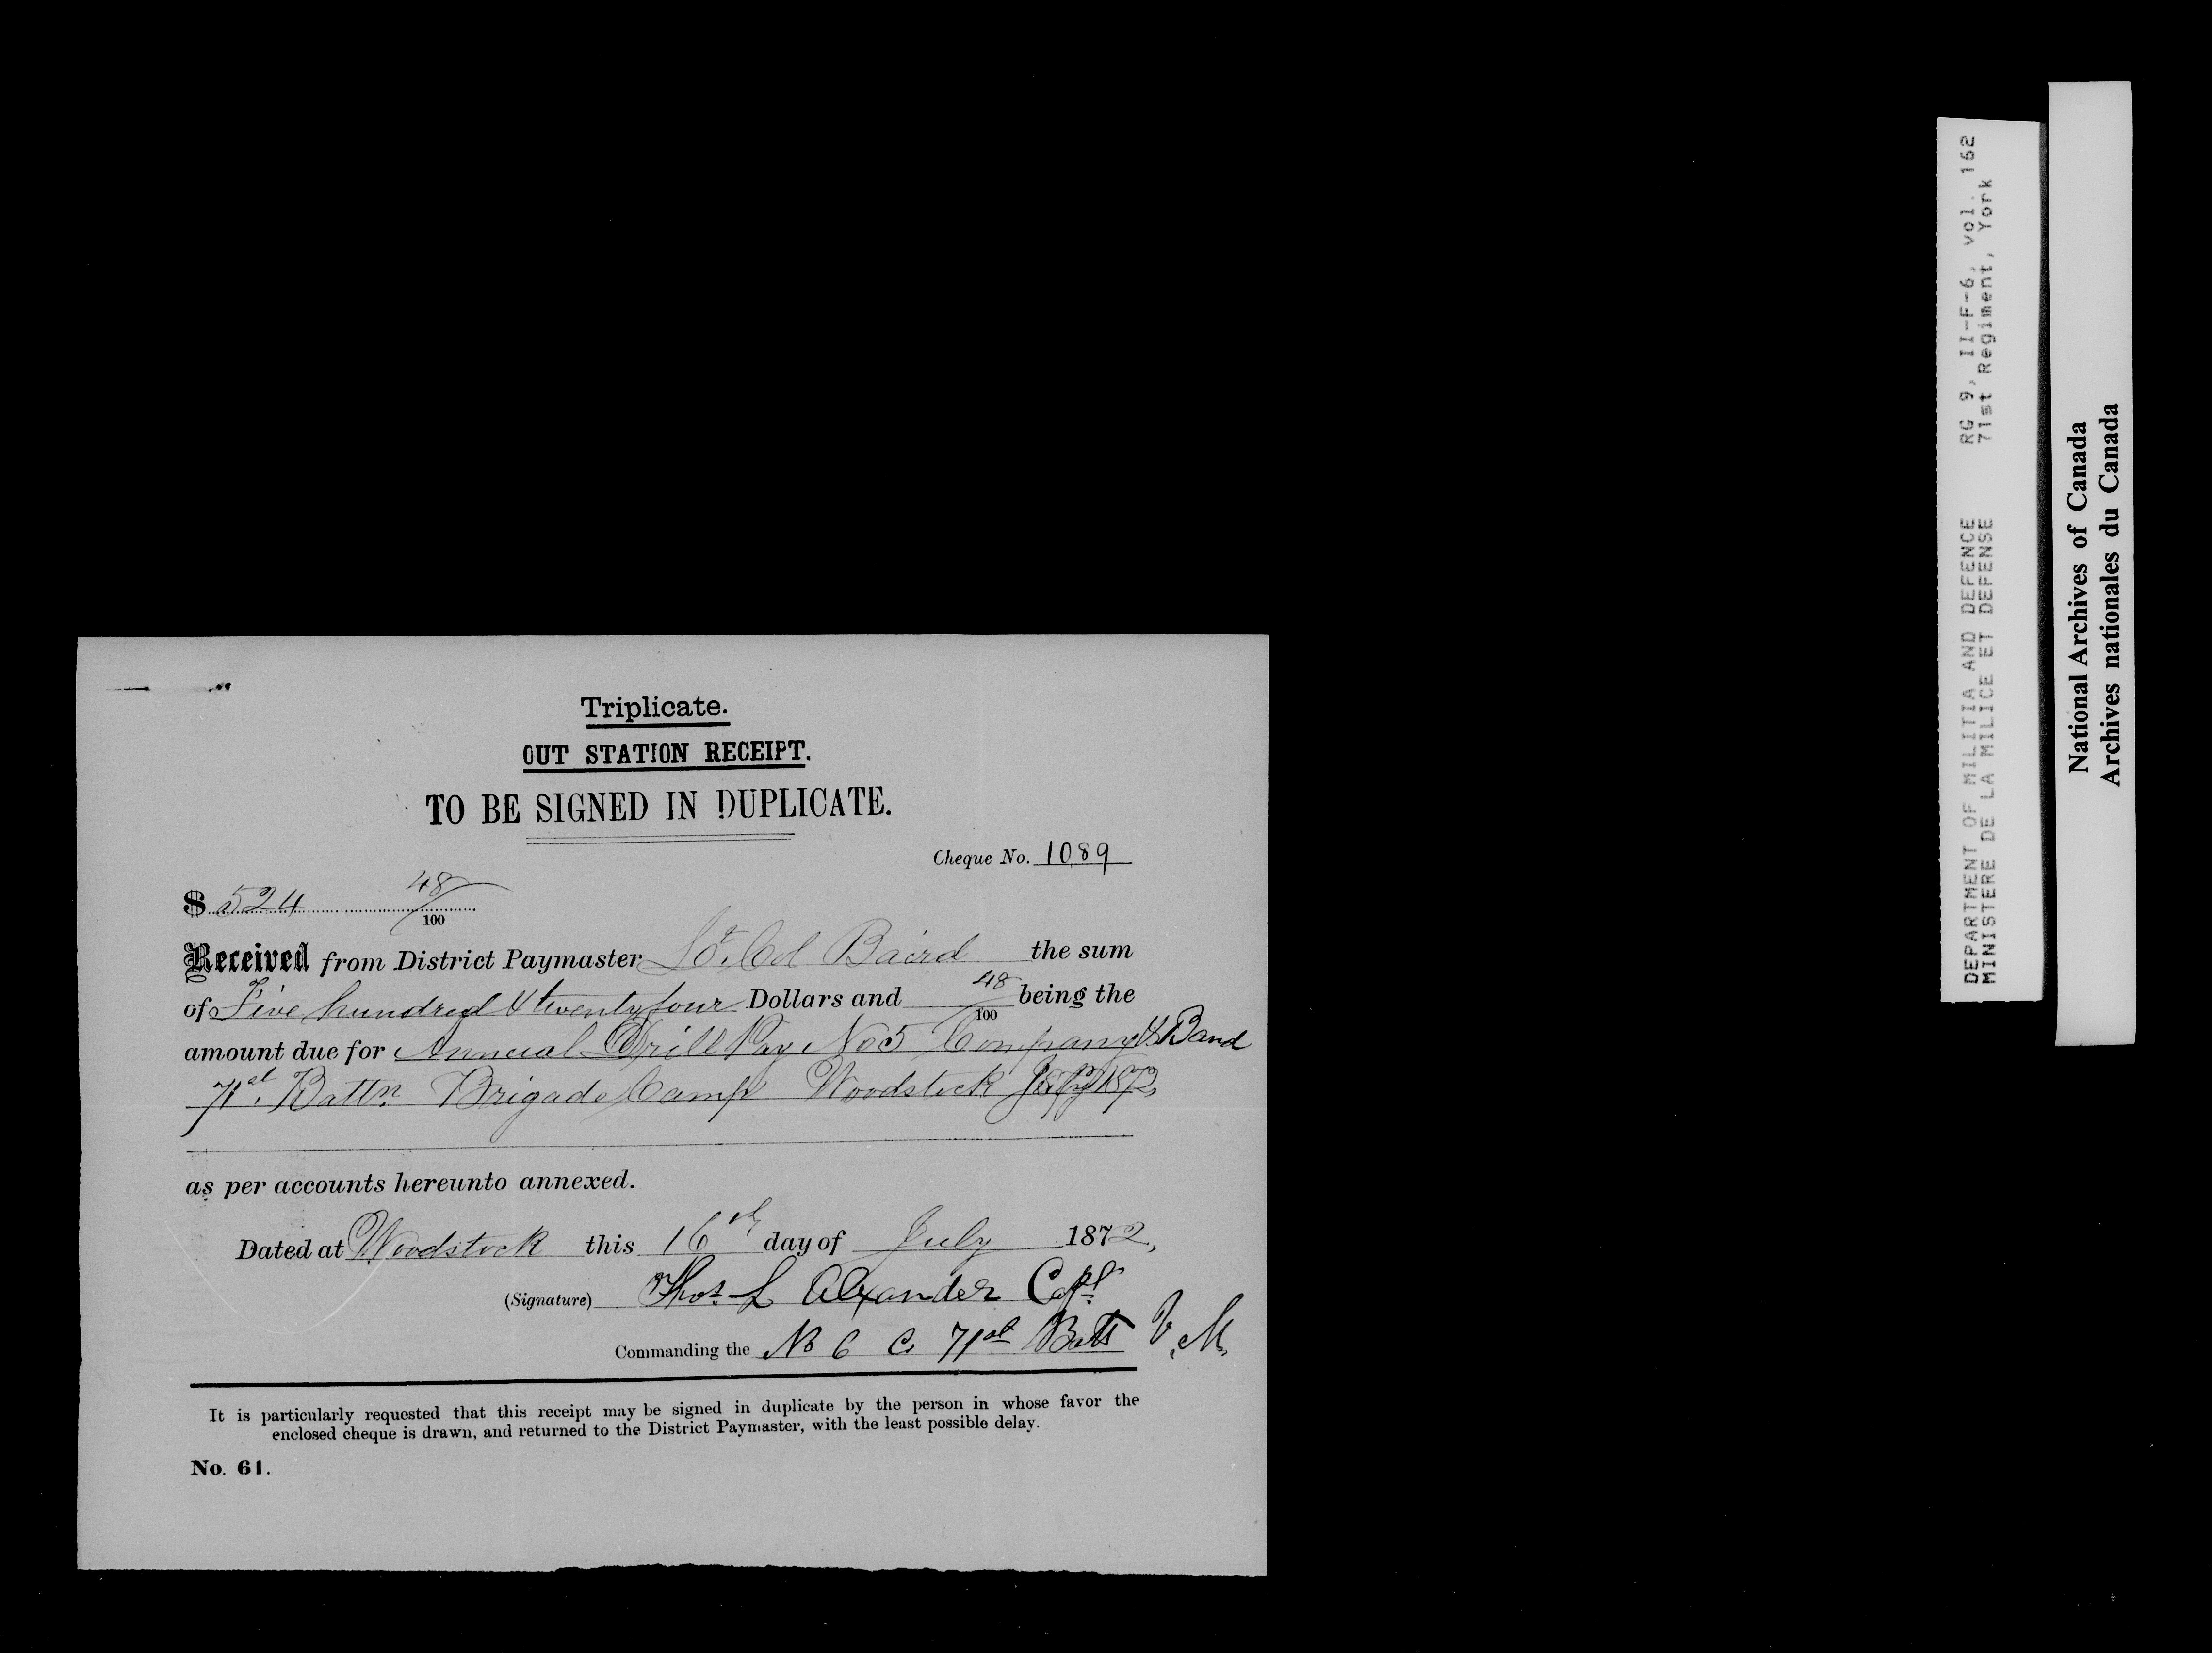 Triplicate.
OUT STATION RECEIPT.
TO BE SIGNED IN DUPLICATE.
Cheque No. 1089
$ 524 48/100
Received from District Paymaster Lt. Col Baird the sum
of Five hundred & twenty four Dollars and 48/100 being the
amount due for Annual Drill Pay No 5 Company & Band
71st. Battn Brigade Camp Woodstock July 1872,
as per accounts hereunto annexed.
Dated at Woodstock this 16th day of July 1872,
(Signature) Thos. L Alxander Capt.
Commanding the No 6 C. 71st Batt V. M.
It is particularly requested that this receipt may be signed in duplicate by the person in whose favor the
enclosed cheque is drawn, and returned to the District Paymaster, with the least possible delay.
No. 61.
DEPARTMENT OF MILITIA AND DEFENCE RG 9, II-F-6, vol. 162
MINISTERE DE LA MILICE ET DEFENSE 71st Regiment, York
National Archives of Canada
Archives nationales du Canada